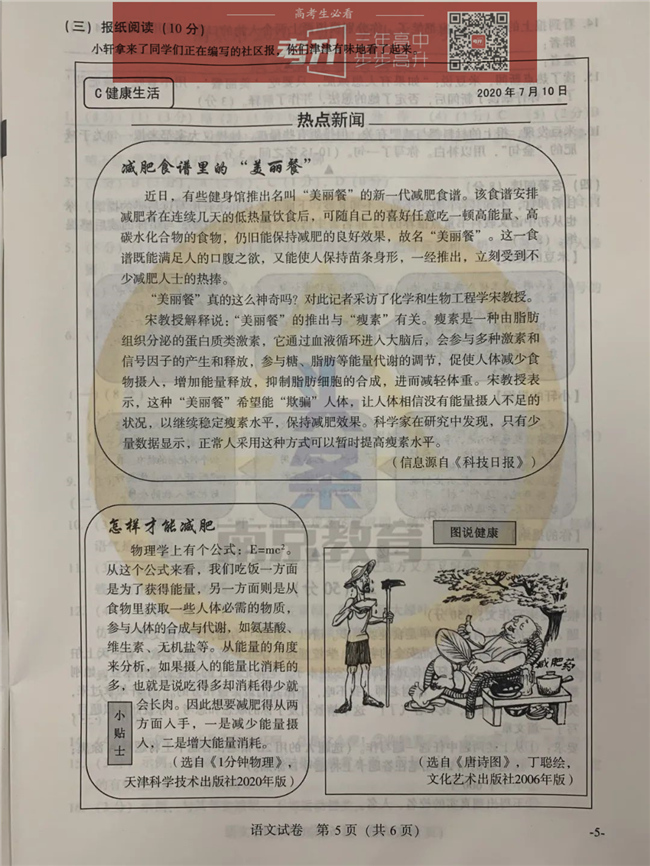 高考生必看
考升
三年高中
步步高升
（三）报纸阅读（10分）
小轩拿来了同学们正在编写的社区报，你们津津有味地看了起来。
C健康生活
2020年7月10日
热点新闻
减肥食谱里的“美丽餐”
近日，有些健身馆推出名叫“美丽餐”的新一代减肥食谱。该食谱安排
减肥者在连续几天的低热量饮食后，可随自己的喜好任意吃一顿高能量、高
碳水化合物的食物，仍旧能保持减肥的良好效果，故名“美丽餐”。这一食
谱既能满足人的口腹之欲，又能使人保持苗条身形，一经推出，立刻受到不
少减肥人士的热捧。
“美丽餐”真的这么神奇吗？对此记者采访了化学和生物工程学宋教授。
宋教授解释说：“美丽餐”的推出与“瘦素”有关。瘦素是一种由脂肪
组织分泌的蛋白质类激素，它通过血液循环进入大脑后，会参与多种激素和
信号因子的产生和释放，参与糖、脂肪等能量代谢的调节，促使人体减少食
物摄入，增加能量释放，抑制脂肪细胞的合成，进而减轻体重。宋教授表
示，这种“美丽餐”希望能“欺骗”人体，让人体相信没有能量摄入不足的
状况，以继续稳定瘦素水平，保持减肥效果。科学家在研究中发现，只有少
量数据显示，正常人采用这种方式可以暂时提高瘦素水平。
（信息源自《科技日报》）
怎样才能减肥
物理学上有个公式：E=mc²。
从这个公式来看，我们吃饭一方面
是为了获得能量，另一方面则是从
食物里获取一些人体必需的物质，
参与人体的合成与代谢，如氨基酸、
维生素、无机盐等。从能量的角度
来分析，如果摄入的能量比消耗的
多，也就是说吃得多却消耗得少就
会长肉。因此想要减肥得从两
方面入手，一是减少能量摄
入，二是增大能量消耗。
小贴士
（选自《1分钟物理》，
天津科学技术出版社2020年版）
图说健康
减肥药
（选自《唐诗图》，丁聪绘，
文化艺术出版社2006年版）
南京教育
语文试卷 第5页（共6页）
-5-